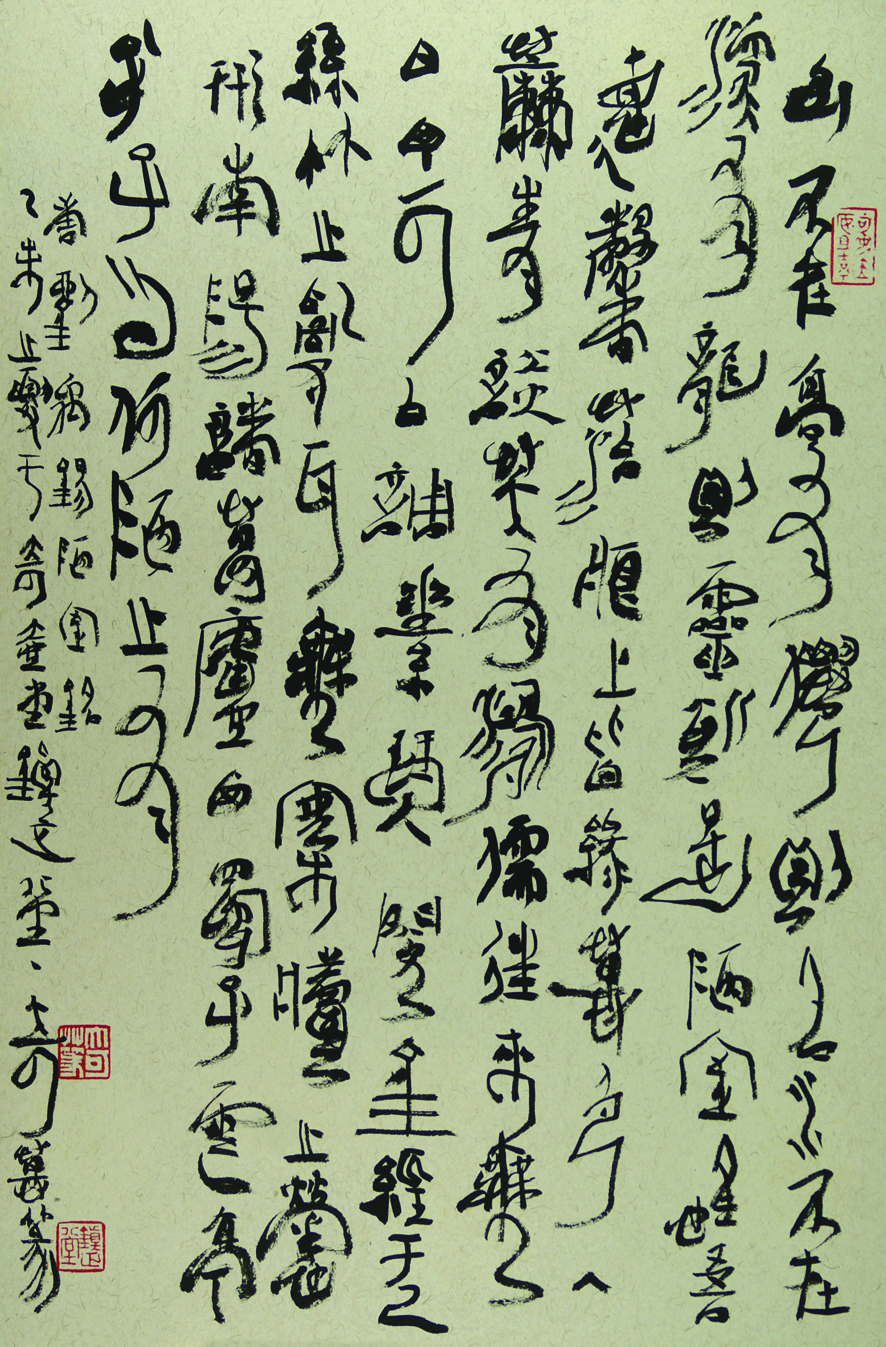 山不在高有僊則名水不在
深有龍則靈斯是陋室唯吾
惪馨苔痕上階綠草色入
簾青談笑有鴻儒往來無
白丁可以調素琴閱金經
絲竹之亂耳無案牘之勞
形南陽諸葛廬西蜀子雲亭
孔子曰何陋之有
唐劉禹錫陋室銘
乙未之夏于奇壺堂 大奇草篆